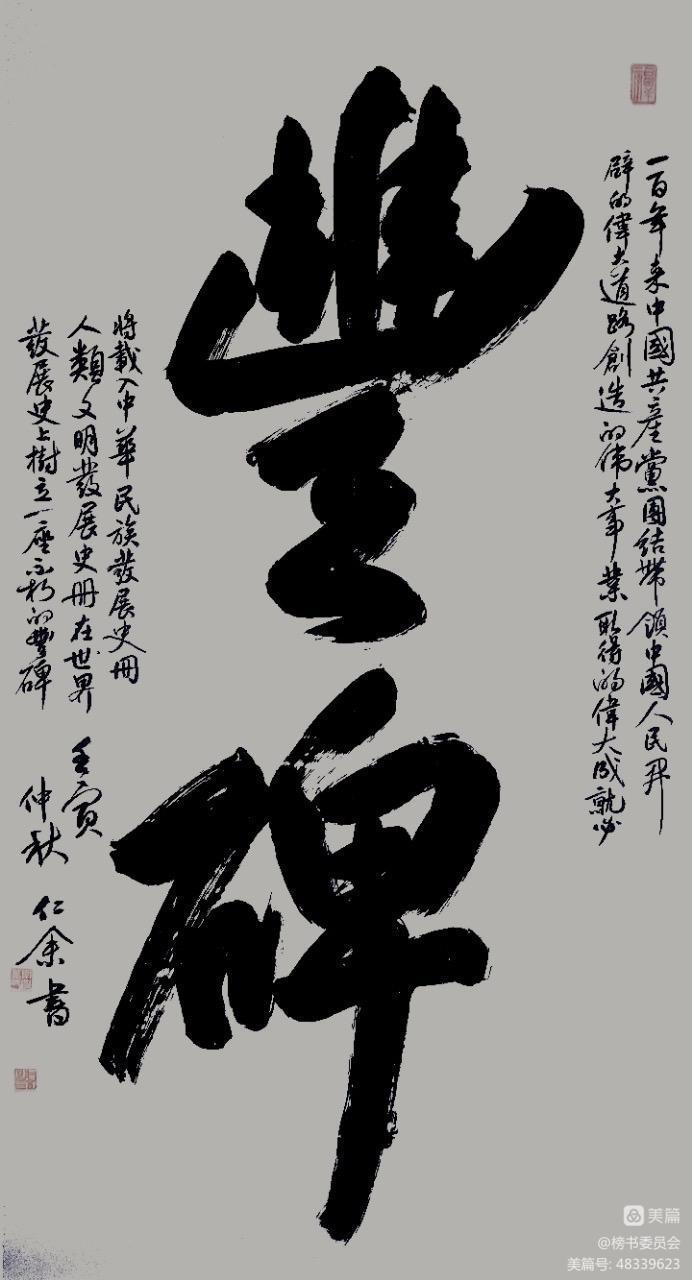 一百年来中國共產黨團結帶領中國人民開
辟的偉大道路創造的偉大事業取得的偉大成就必
豐碑
將載入中華民族發展史冊
人類文明發展史冊在世界
發展史上樹立一座不朽的豐碑
壬寅
仲秋
仁余書
美篇
@榜书委员会
美篇号: 48339623